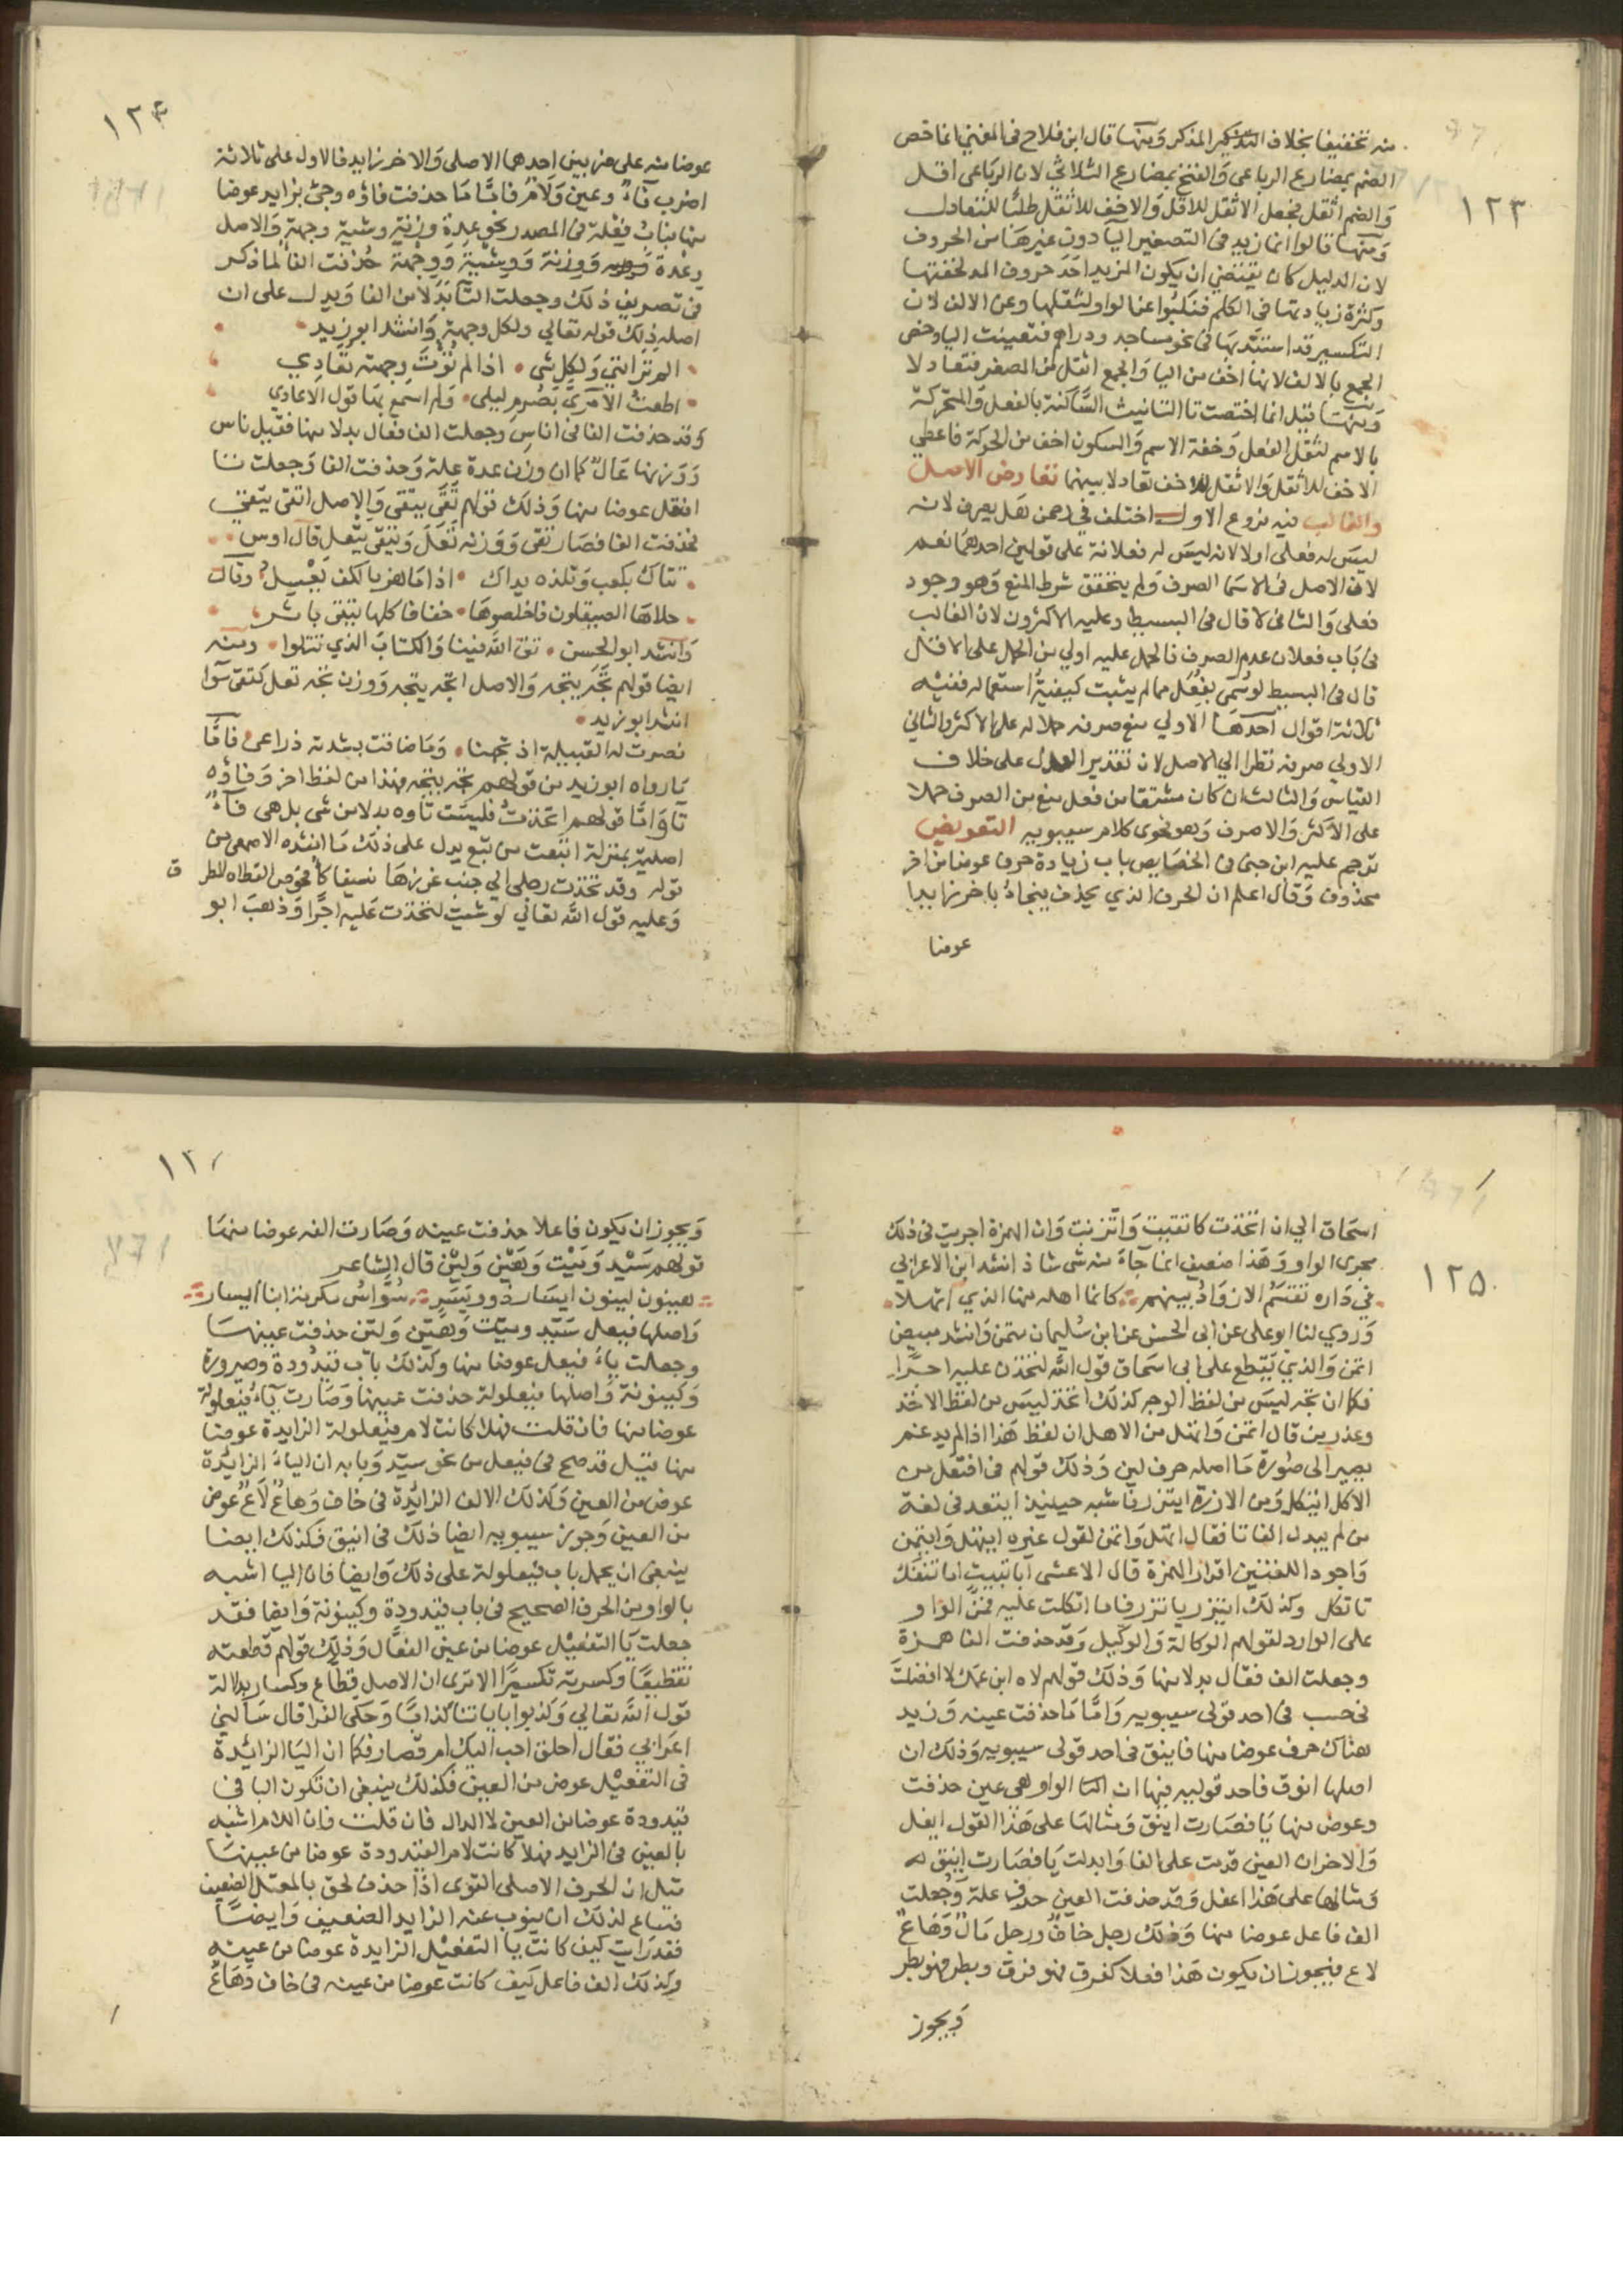 ١٢٣
منه تخفيفا بخلاف التذكير المذكر ومنها قال ابن فلاح في المغني انما خص
الضم بمضارع الرباعي والفتح بمضارع الثلاثي لان الرباعي اقل
والضم اثقل فجعل الاثقل للاقل والاخف للاثقل طلبا للتعادل
ومنها قالوا انما زيد في التصغير اليا دون غيرها من الحروف
لان الدليل كان يقتضي ان يكون المزيد احد حروف المد لخفتها
وكثرة زيادتها في الكلم فنكبوا عن الواو لثقلها وعن الالف لان
التكسير قد استبد بها في نحو مساجد ودراهم فتعينت اليا وخص
الجمع بالالف لانها اخف من اليا والجمع اثقل من المصغر فتعادلا
ومنها قيل انما اختصت تا التانيث الساكنة بالفعل والمتحركة
بالاسم لثقل الفعل وخفة الاسم والسكون اخف من الحركة فاعطي
الاخف للاثقل والاثقل للاخف تعادلا بينهما تعارض الاصل
والغالب فيه فروع الاول اختلف في رحمن هل يصرف لانه
ليس له فعلى اولا لانه ليس له فعلانة على قولين احدهما نعم
لان الاصل في الاسما الصرف ولم يتحقق شرط المنع وهو وجود
فعلى والثاني لا قال في البسيط وعليه الاكثرون لان الغالب
في باب فعلان عدم الصرف فالحمل عليه اولي من الحمل على الاقل
قال في البسيط لو سمى بفعل مما لم يثبت كيفية استعماله ففيه
ثلاثة اقوال احدها الاولي منع صرفه حملا له على الاكثر والثاني
الاولي صرفه نظرا الي الاصل لان تقدير العدل على خلاف
القياس والثالث ان كان مشتقا من فعل منع من الصرف حملا
على الاكثر والا صرف وهو فحوى كلام سيبويه التعويض
ترجم عليه ابن جنى في الخصايص باب زيادة حرف عوضا من اخر
محذوف وقال اعلم ان الحرف الذي يحذف فيجاء باخر زايدا
عوضا
١٢٤
عوضا منه على ضربين احدهما الاصلى والاخر زايد فالاول على ثلاثة
اضرب فاء وعين ولام فاما ما حذفت فاؤه وجئ بزايد عوضا
منها فباب فعلة في المصدر نحو عدة وزنة وشية وجهة والاصل
وعدة ووزنة ووشية ووجهة حذفت الفا لما ذكر
في تصريف ذلك وجعلت التا بدلا من الفا ويدل على ان
اصله ذلك قوله تعالي ولكل وجهة وانشد ابو زيد
الم تر انني ولكل شى اذا لم تؤت وجهته تعادي
اطعت الآمري بصرم ليلى ولم اسمع بها قول الاعادي
وقد حذفت الفا في اناس وجعلت الف فعال بدلا منها فقيل ناس
ووزنها عال كما ان وزن عدة علة وحذفت الفا وجعلت تا
افتعل عوضا منها وذلك قولهم تقى يتقى والاصل اتقى يتقي
فحذفت الفا فصار تقى ووزنه تعل ويتقى يتعل قال اوس
تقاك بكعب وتلذه يداك اذا ما هز بالكف يعسل وقال
جلاها الصيقلون فاخلصوها خفافا كلها يتقى باثر
وانشد ابو الحسن تق الله فينا والكتاب الذي تتلوا ومنه
ايضا قولهم تجه يتجه والاصل اتجه يتجه ووزن تجه تعل كتقى سوا
انشد ابو زيد
قصرت له القبيلة اذ تجهنا وما ضاقت بشدته ذراعى فاما
ما رواه ابو زيد من قولهم تجه يتجه فهذا من لفظ اخر وفاؤه
تا واما قولهم اتخذت فليست تاوه بدلا من شى بل هى فاء
اصلية بمنزلة اتبعت من تبع يدل على ذلك ما انشده الاصمعي من
قوله وقد تخذت رجلى الي جنب غرزها نسيفا كافحوص القطاه المطرق
وعليه قول الله تعالي لو شئت لتخذت عليه اجرا وذهب ابو
١٢٥
اسحاق الي ان اتخذت كاتقيت واتزنت وان الهمزة اجريت في ذلك
مجرى الواو وهذا ضعيف انما جاء منه شى شاذ انشد ابن الاعرابي
في داره تقتسم الازواد بينهم كانما اهله منها الذي اتهلا
وروي لنا ابو على عن ابى الحسن عن ابن سليمان متمن وانشد مبيض
اتمن والذي يقطع على ابى اسحاق قول الله لتخذت عليه اجرا
فكما ان تجه ليس من لفظ الوجه كذلك تخذ ليس من لفظ الاخذ
وعذر من قال اتمن واتهل من الاهل ان لفظ هذا اذا لم يدغم
يصير الى صورة ما اصله حرف لين وذلك قولهم في افتعل من
الاكل ايتكل ومن الازرة ايتزر فاشبه حينيذ ايتعد في لغة
من لم يبدل الفا تا فقال اتهل واتمن لقول غيره ايتهل وايتمن
واجود اللغتين اقرار الهمزة قال الاعشى ابا ثبيت اما تنفك
تاتكل وكذلك ايتزر ياتزر فاما اتكلت عليه فمن الواو
على الوارد لقولهم الوكالة والوكيل وقد حذفت الفا همزة
وجعلت الف فعال بدلا منها وذلك قولهم لاه ابن عمك لا افضلت
في حسب في احد قولى سيبويه واما ما حذفت عينه وزيد
هناك حرف عوضا منها فاينق في احد قولى سيبويه وذلك ان
اصلها انوق فاحد قوليه فيها ان الواو هى عين حذفت
وعوض منها يا فصارت اينق ومثالها على هذا القول ايفل
والاخر ان العين قدمت على الفا وابدلت يا فصارت اينق له
ومثالها على هذا اعفل وقد حذفت العين حرف علة وجعلت
الف فاعل عوضا منها وذلك رجل خاف ورجل مال وهاع
لاع فيجوز ان يكون هذا فعلا كفرق فهو فرق وبطر فهو بطر
ويجوز
ويجوز ان يكون فاعلا حذفت عينه وصارت الفه عوضا منها
قولهم سيد وميت وهين ولين قال الشاعر
هينون لينون ايسار ذوو يسر سواس مكرمة ابنا ايسار
واصلها فيعل سيد وميت وهين ولين حذفت عينها
وجعلت ياء فيعل عوضا منها وكذلك باب قيدودة وصيرورة
وكينونة واصلها فيعلولة حذفت عينها وصارت ياء فيعلولة
عوضا منها فان قلت فهلا كانت لام فيعلولة الزايدة عوضا
منها قيل قد صح في فيعل من نحو سيد وبابه ان الياء الزائدة
عوض من العين وكذلك الالف الزائدة في خاف وهاع لاع عوض
من العين وجوز سيبويه ايضا ذلك في اينق فكذلك ايضا
ينبغى ان يحمل باب فيعلولة على ذلك وايضا فان اليا اشبه
بالواو من الحرف الصحيح في باب قيدودة وكينونة وايضا فقد
جعلت يا التفعيل عوضا من عين الفعال وذلك قولهم قطعته
تقطيعا وكسرته تكسيرا الا ترى ان الاصل قطاع وكسار بدلالة
قول الله تعالي وكذبوا باياتنا كذابا وحكى الفرا قال سالني
اعرابي فقال احلق احب اليك ام قصار فكما ان اليا الزائدة
في التفعيل عوض من العين فكذلك ينبغى ان تكون اليا في
قيدودة عوضا من العين لا الدال فان قلت فان اللام اشبه
بالعين من الزايد فهلا كانت لام القيدودة عوضا من عينها
قيل ان الحرف الاصلى القوى اذا حذف لحق بالمعتل الضعيف
فساغ لذلك ان ينوب عنه الزايد الضعيف وايضا
فقد رايت كيف كانت يا التفعيل الزايدة عوضا من عينه
وكذلك الف فاعل كيف كانت عوضا من عينه في خاف وهاع